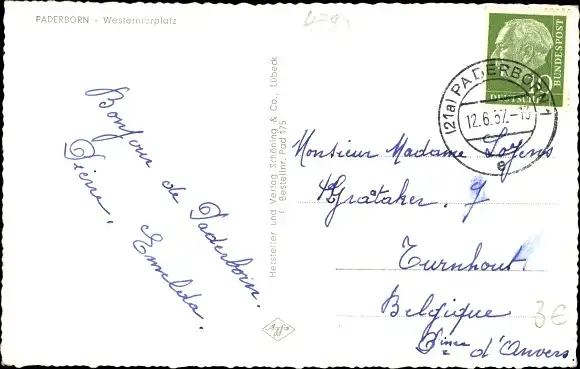 PADERBORN - Westerntorplatz
Bonjour de Paderborn.
Pierre, Emelda.
Hersteller und Verlag Schöning & Co., Lübeck
Bestellnr. Pad 175
DEUTSCHE
BUNDESPOST
(21a) PADERBORN 1
12.6.57.-13
e
Monsieur Madame Loyens
Graataker. 9
Turnhout.
Belgique
d'Anvers
3€